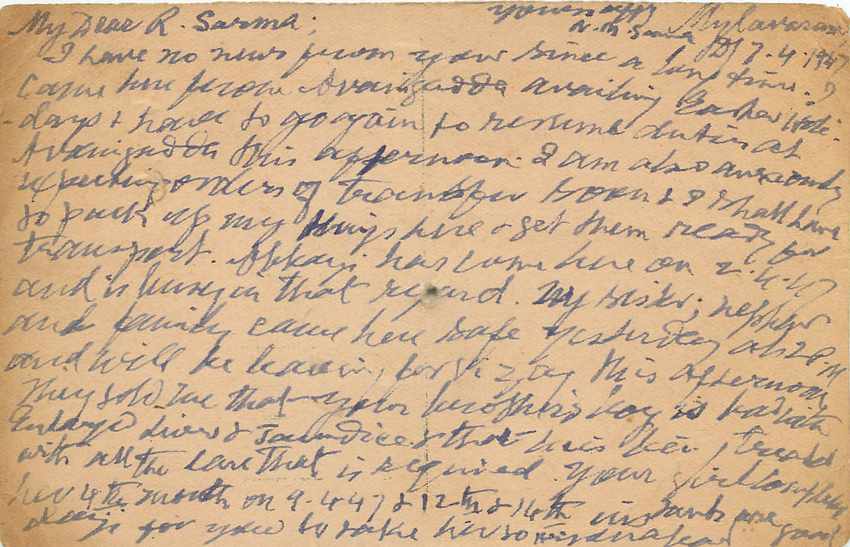 My Dear R. Sarma; yours affly Mylavaram,
N. M. Sarma D/ 7.4.1947
I have no news from your since a long time. I
came here from Avanigadda availing Easter Holi-
-days & have to go again to resume duties at
Avanigadda this afternoon. I am also anxiously
expecting orders of transfer soon & I shall have
to pack up my things here & get them ready for
transport. has come here on 2.4.47
and is busy in that regard. My sister, nephew
and family came here safe yesterday at 2 PM
and will be leaving for this afternoon
They told me that your brother's boy is bad with
Enlarged liver & Jaundice & that he is being treated
with all the care that is required. Your girl completes
her 4th month on 9.4.47 & 12th & 14th instants are good
days for you to take her to